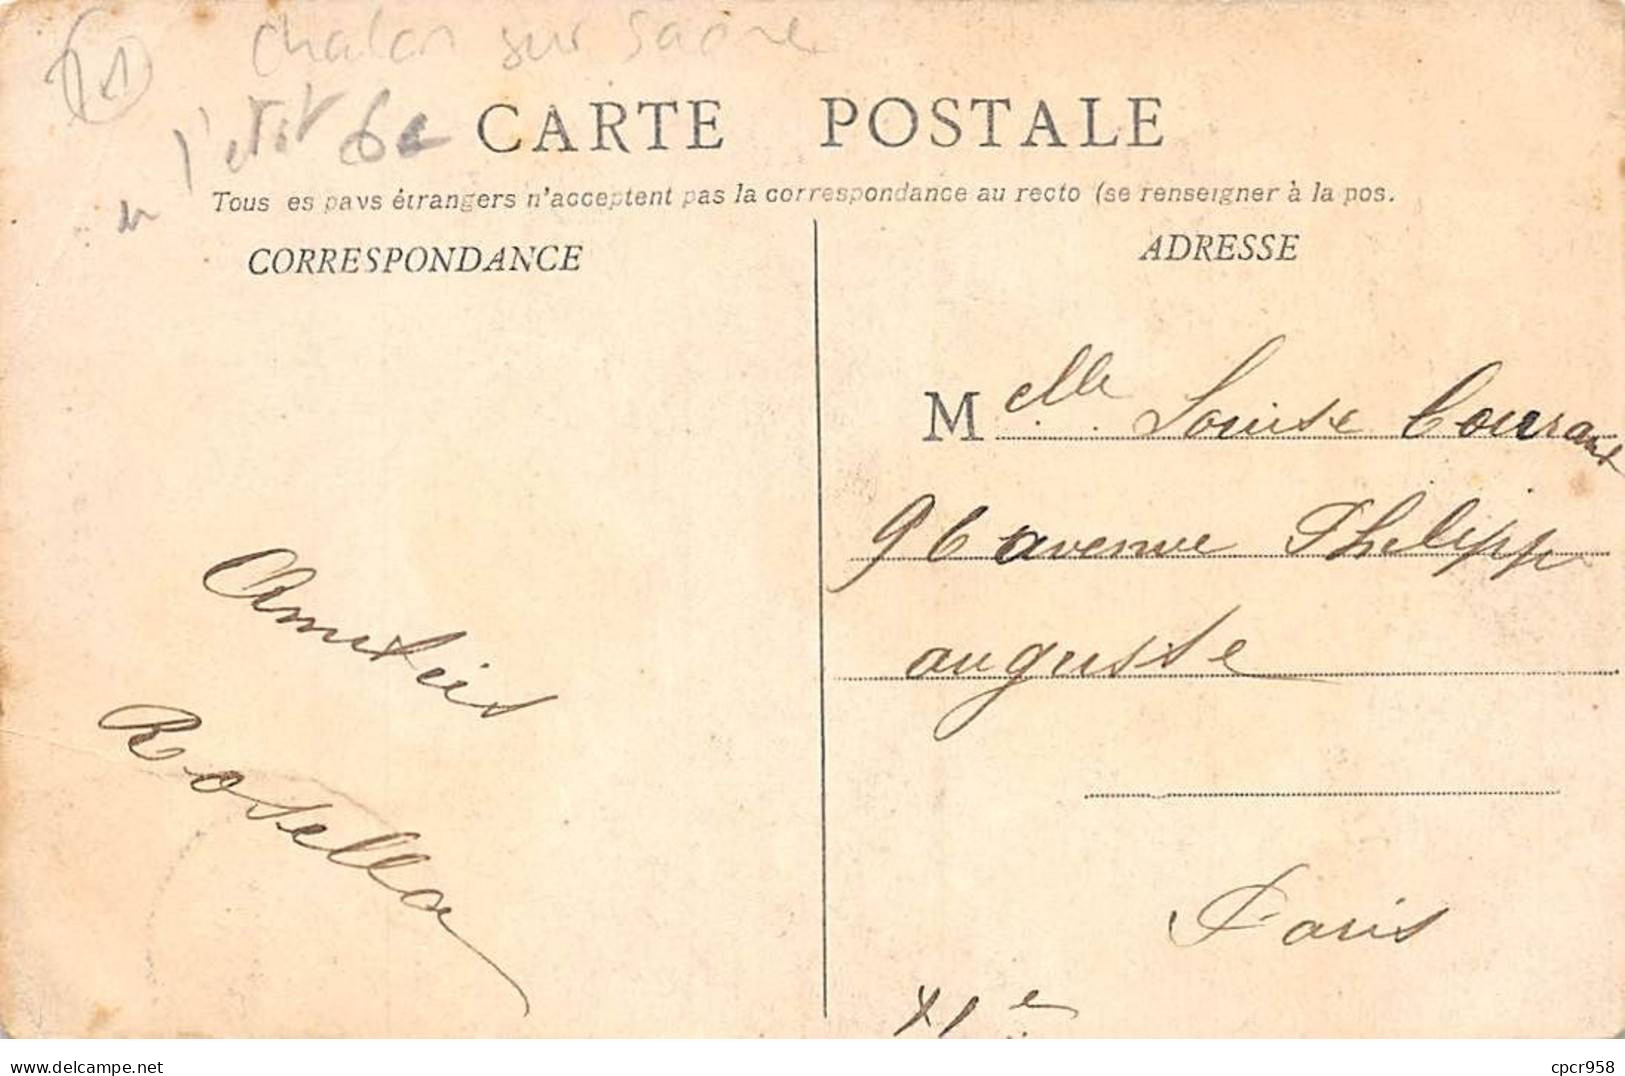 71
Chalon sur Saone
l'etat 6e
CARTE POSTALE
Tous es pays étrangers n'acceptent pas la correspondance au recto (se renseigner à la pos.
CORRESPONDANCE
ADRESSE
Melle Louise Courrant
96 avenue Philipp
auguste
Paris
XIe
Amitiés
Rosella
delcampe.net
cpcr958